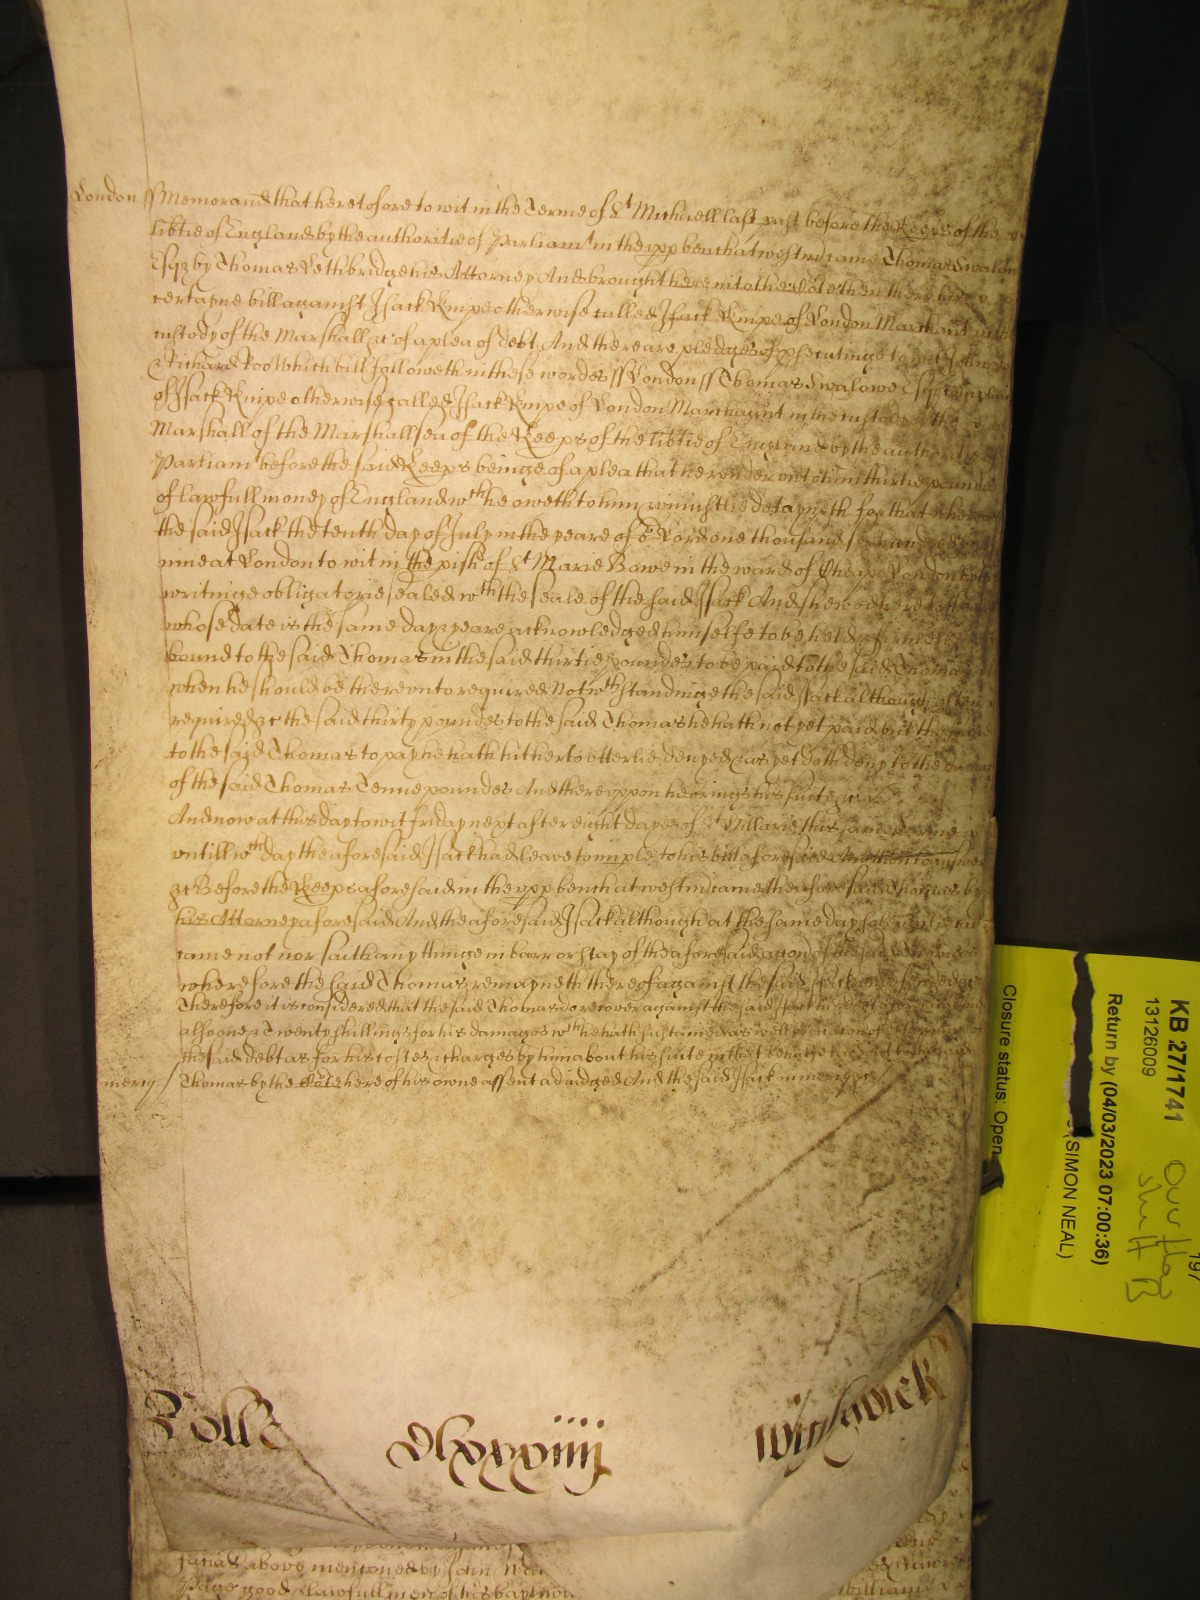 London ss Memorand that heretofore to wit in the Terme of St Michaell last past before the Keeps of the
libtie of England by the authoritie of Parliamt in the vpp bench at westmr came Thomas Swalow
Esqr by Thomas Lethbridge his Attorney And brought here into the Cote then there his
certayne bill against Isack Knipe otherwise called Isack Knipe of London Marchant in the
custody of the Marshall &c of a plea of debt And there are pledges of psecutinge to wit John Doe
& Richard Roo Which bill followeth in these wordes ss London ss Thomas Swalowe Esqr complaines
of Isack Knipe otherwise called Isack Knipe of London Marchaunt in the custody of the
Marshall of the Marshallsea of the Keeps of the libtie of England by the authoritie of
Parliamt before the said Keeps beinge of a plea that he render vnto him thirtie poundes
of lawfull money of England wch he oweth to him & uniustlie detayneth for that whereas
the said Isack the tenth day of July in the yeare of or Lord one thousand six hundred
nine at London to wit in the pish of St Marie Bowe in the ward of Cheape London by his
writinge obligatorie sealed wth the seale of the said Isack And shewed here to the
whose date is the same day & yeare acknowledged himselfe to be held & firmely
bound to the said Thomas in the said thirtie poundes to be paid to the said Thomas
when he should be therevnto required Notwthstandinge the said Isack although often
required &c the said thirty poundes to the said Thomas he hath not yet paid but the same
to the said Thomas to pay he hath hitherto vtterlie denyed & as yet doth deny to the damage
of the said Thomas Tenne poundes And therevppon he brings his suite &c
And now at this day to wit friday next after eight dayes of St Hillarie this same Terme
vntill wch day the aforesaid Isack had leave to imple to his bill aforesaid And then to answer
&c Before the Keeps aforesaid in the vpp bench at westmr came the aforesaid Thomas by
his Attorney aforesaid And the aforesaid Isack although at the same day solemnlie called
came not nor saith any thinge in barr or stay of the aforesaid accon of the said Thomas
wherefore the said Thomas remayneth thereof against the said Isack vndefended
Therefore it is considered that the said Thomas doe recover against the said Isack his debt aforesaid And
alsoe one & Twenty shillings for his damages wch he hath sustained as well by occasion of the deteyninge of
the said debt as for his costes & charges by him about his suite in that behalfe
mercy / Thomas by the Cote here of his owne assent adiudged And the said Isack in mercy &c
Rolle clxxxiiij wightwick
above mentoned by John
Page good & lawfull men of his baylywick
william
KB 27/1741
13126009
Return by (04/03/2023 07:00:36)
(SIMON NEAL)
Closure status: Open
197